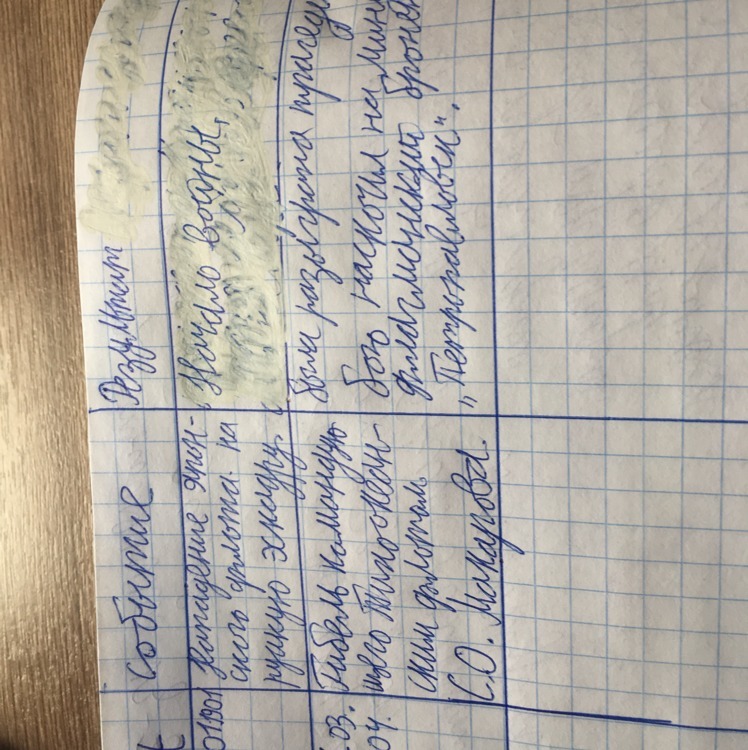 Событие
Результат
011901
Нападение япон-
ского флота на
русскую эскадру.
Начало войны.
03.
04.
Гибель командую
щего Тихоокеан-
ским флотом
С.О. Макарова.
была разыграна трагед
бою наскочил на мин
флагманский броне
„Петропавловск“.